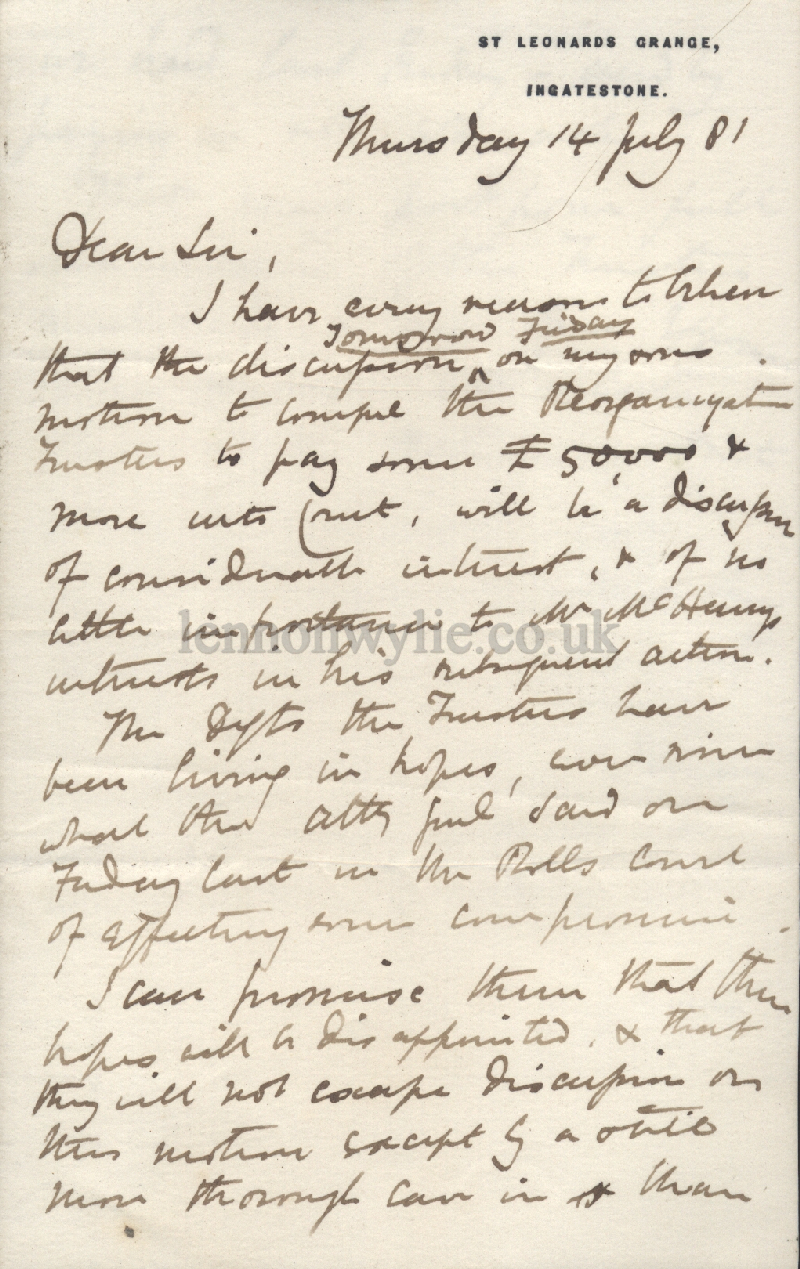 ST LEONARDS GRANGE,
INGATESTONE.
Thursday 14 July 81
Dear Sir,
I have every reason to believe
Tomorrow Friday
that the discussion on my own
motion to compel the Reorganization
Trustees to pay some £50,000 &
more into Court, will be a discussion
of considerable interest, & of no
little importance to Mr McHenry's
interests in his subsequent action.
The Defts the Trustees have
been living in hopes, ever since
what the Atty Genl said on
Friday last in the Rolls Court
of effecting some compromise.
I can promise them that their
hopes will be disappointed, & that
they will not escape discussion on
this motion except by a still
more thorough cave in than
lennonwylie.co.uk